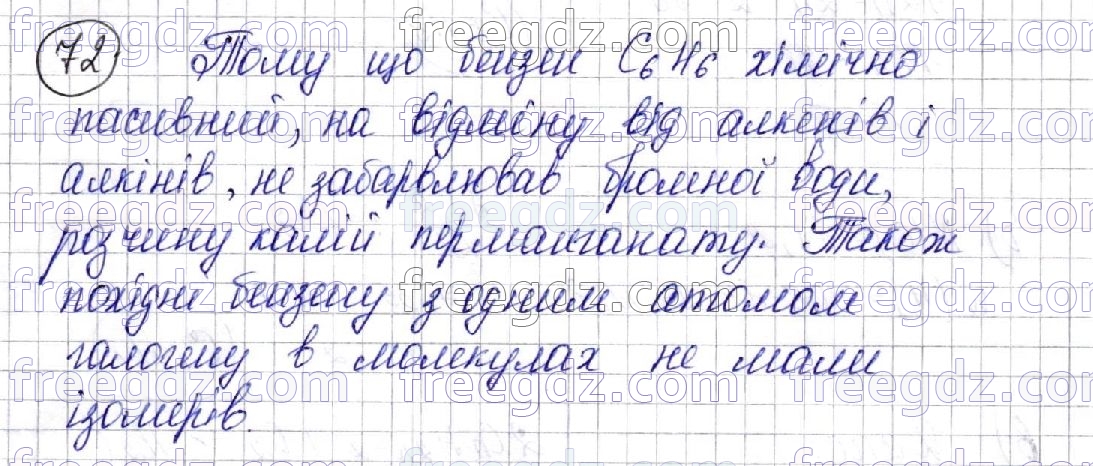 72 Тому що бензен C₆H₆ хімічно
пасивний, на відміну від алкенів і
алкінів, не забарвлював бромної води,
розчину калій перманганату. Також
похідні бензену з одним атомом
галогену в молекулах не мали
ізомерів.